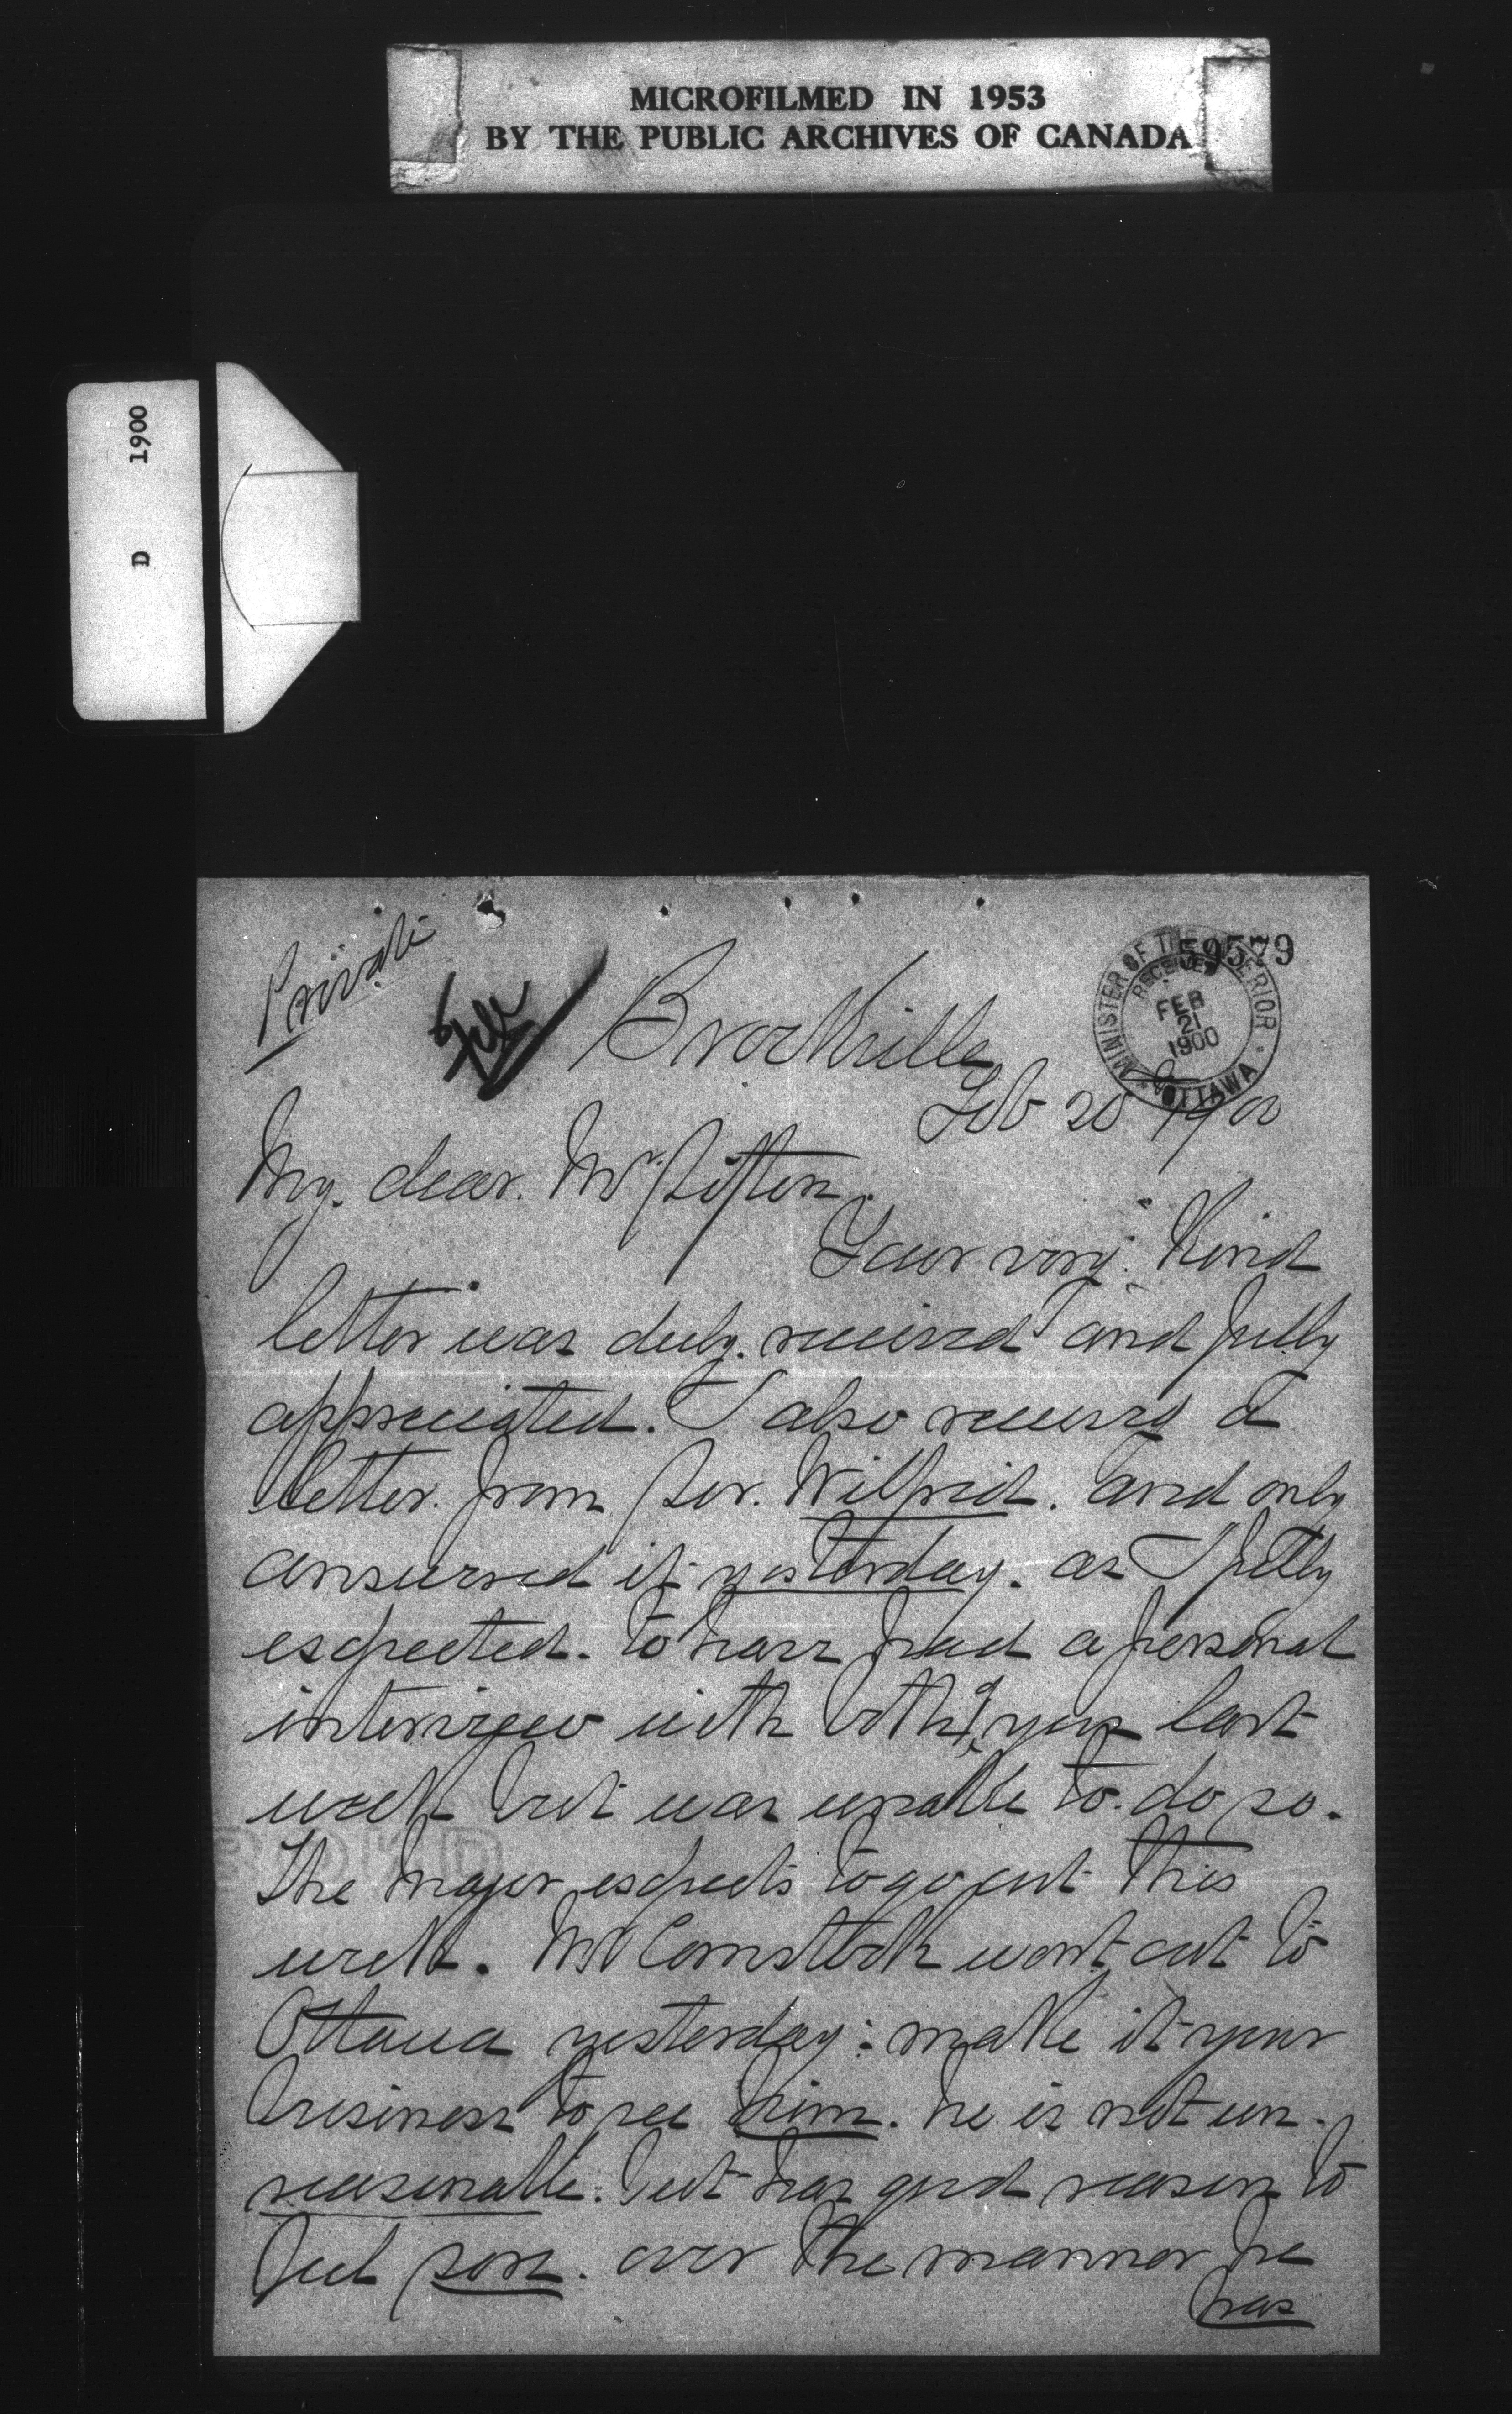 MICROFILMED IN 1953
BY THE PUBLIC ARCHIVES OF CANADA
D 1900
Private
59579
MINISTER OF THE INTERIOR
RECEIVED
FEB
21
1900
OTTAWA
Brockville
Feb 20 1900
My dear Mr Sifton.
Your very kind
letter was duly received and fully
appreciated. I also received a
letter from Sir. Wilfrid. and only
answered it yesterday. as I fully
expected. to have had a personal
interview with both of you last
week but was unable to do so.
The Major expects to go out this
week. Mr Comstock went out to
Ottawa yesterday: make it your
business to see him. he is not un-
reasonable. but has good reason to
feel sore. over the manner he
has